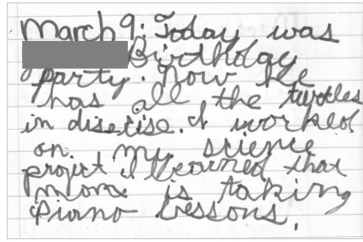 March 9: Today was
Birthday
party. Now he
has all the turtles
in disetise. I worked
on my science
project. I learned that
mom is taking
Piano Lessons.